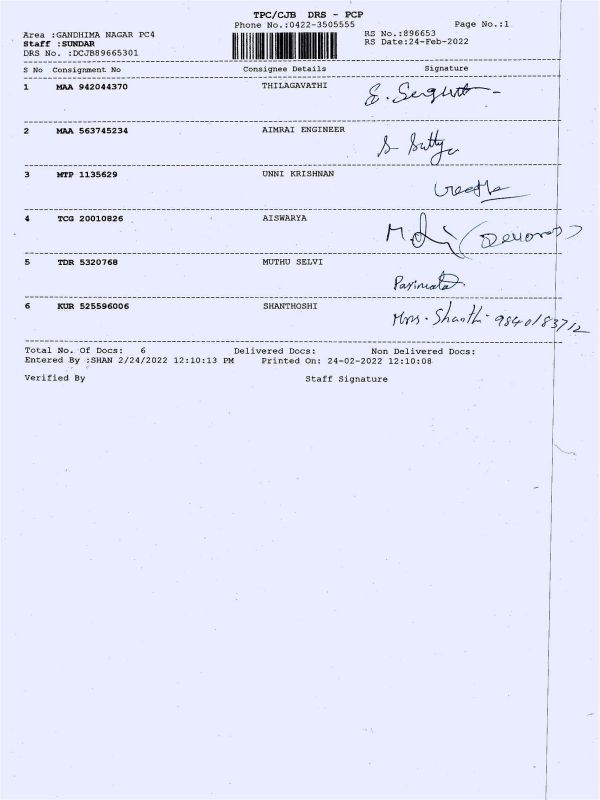 TPC/CJB DRS - PCP
Phone No.:0422-3505555 Page No.:1
Area :GANDHIMA NAGAR PC4 RS No.:896653
Staff :SUNDAR RS Date:24-Feb-2022
DRS No. :DCJB89665301
S No Consignment No Consignee Details Signature
1 MAA 942044370 THILAGAVATHI
2 MAA 563745234 AIMRAI ENGINEER
3 MTP 1135629 UNNI KRISHNAN
4 TCG 20010826 AISWARYA
5 TDR 5320768 MUTHU SELVI
6 KUR 525596006 SHANTHOSHI
Mrs. Shanthi 9840183712
Total No. Of Docs: 6 Delivered Docs: Non Delivered Docs:
Entered By :SHAN 2/24/2022 12:10:13 PM Printed On: 24-02-2022 12:10:08
Verified By Staff Signature